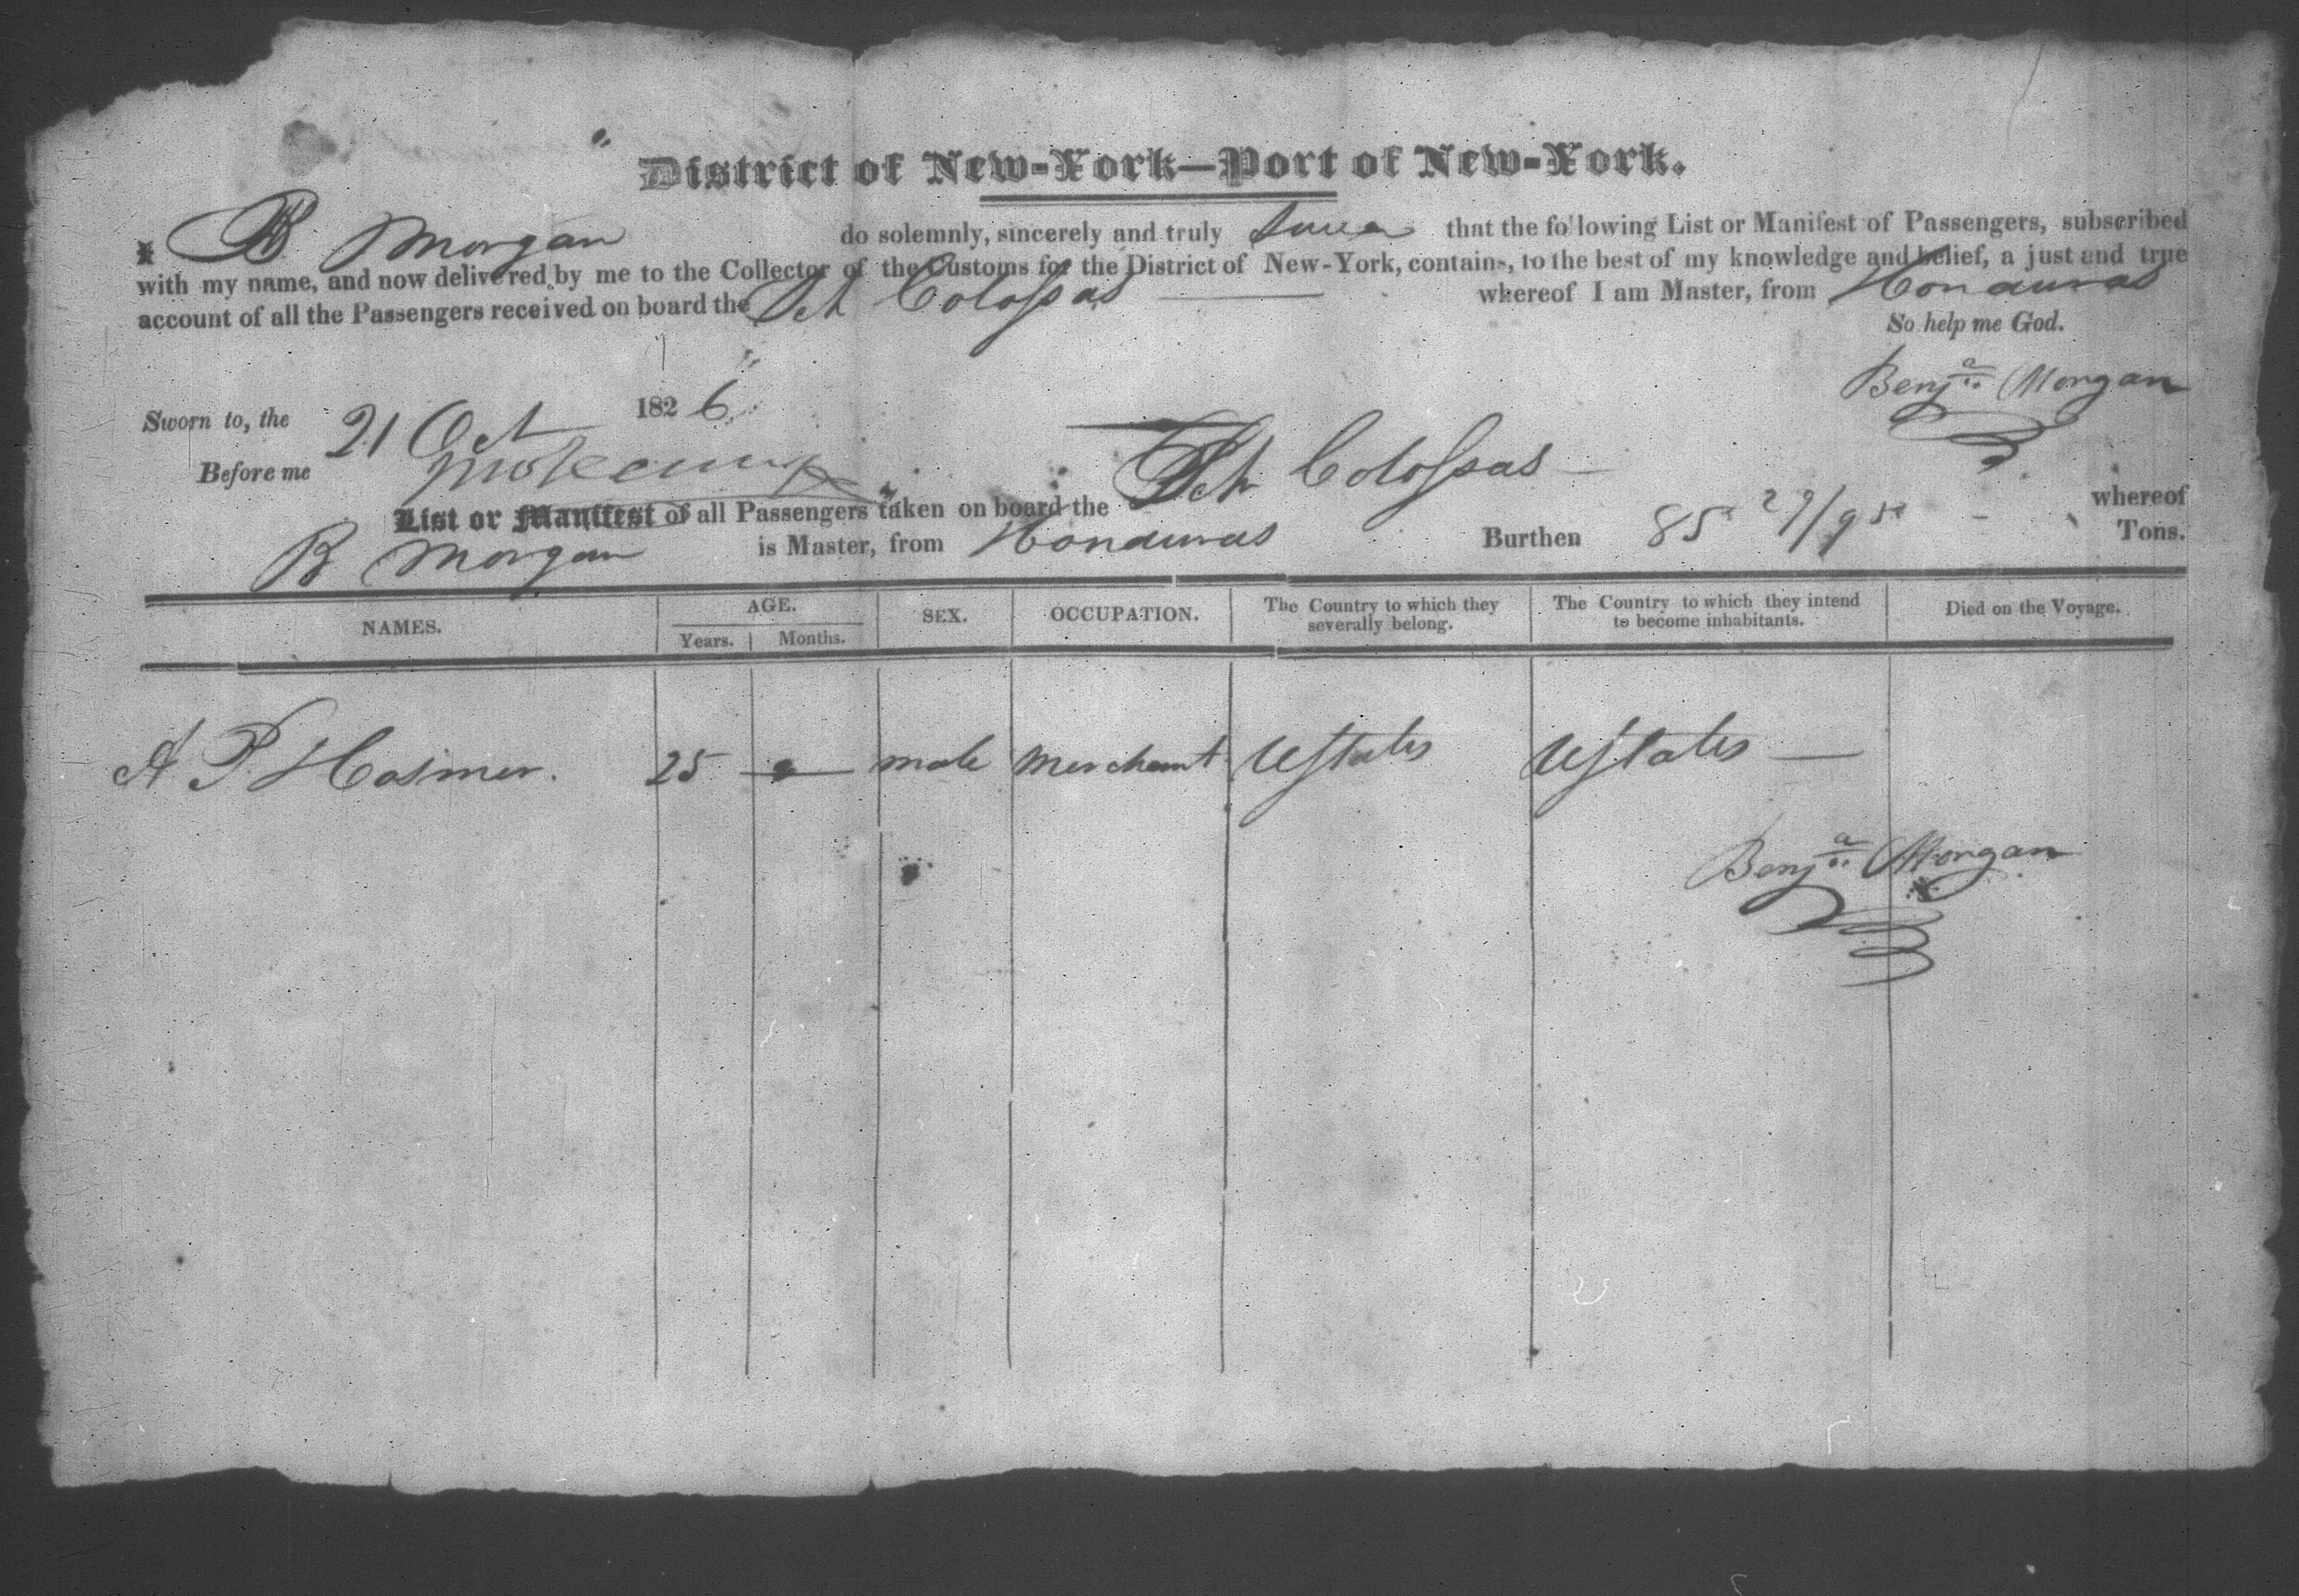 District of New-York—Port of New-York.
I B. Morgan do solemnly, sincerely and truly swear that the following List or Manifest of Passengers, subscribed
with my name, and now delivered by me to the Collector of the Customs for the District of New-York, contains, to the best of my knowledge and belief, a just and true
account of all the Passengers received on board the Sch Colossas whereof I am Master, from Honduras
So help me God.
Benja Morgan
Sworn to, the 21 Oct 1826
Before me
List or Manifest of all Passengers taken on board the Sch Colossas — whereof
B Morgan is Master, from Honduras Burthen 85 29/95 Tons.
NAMES. AGE. SEX. OCCUPATION. The Country to which they severally belong. The Country to which they intend to become inhabitants. Died on the Voyage.
Years. Months.
A P. Hosmer. 25 — male merchant UStates UStates —
Benja Morgan